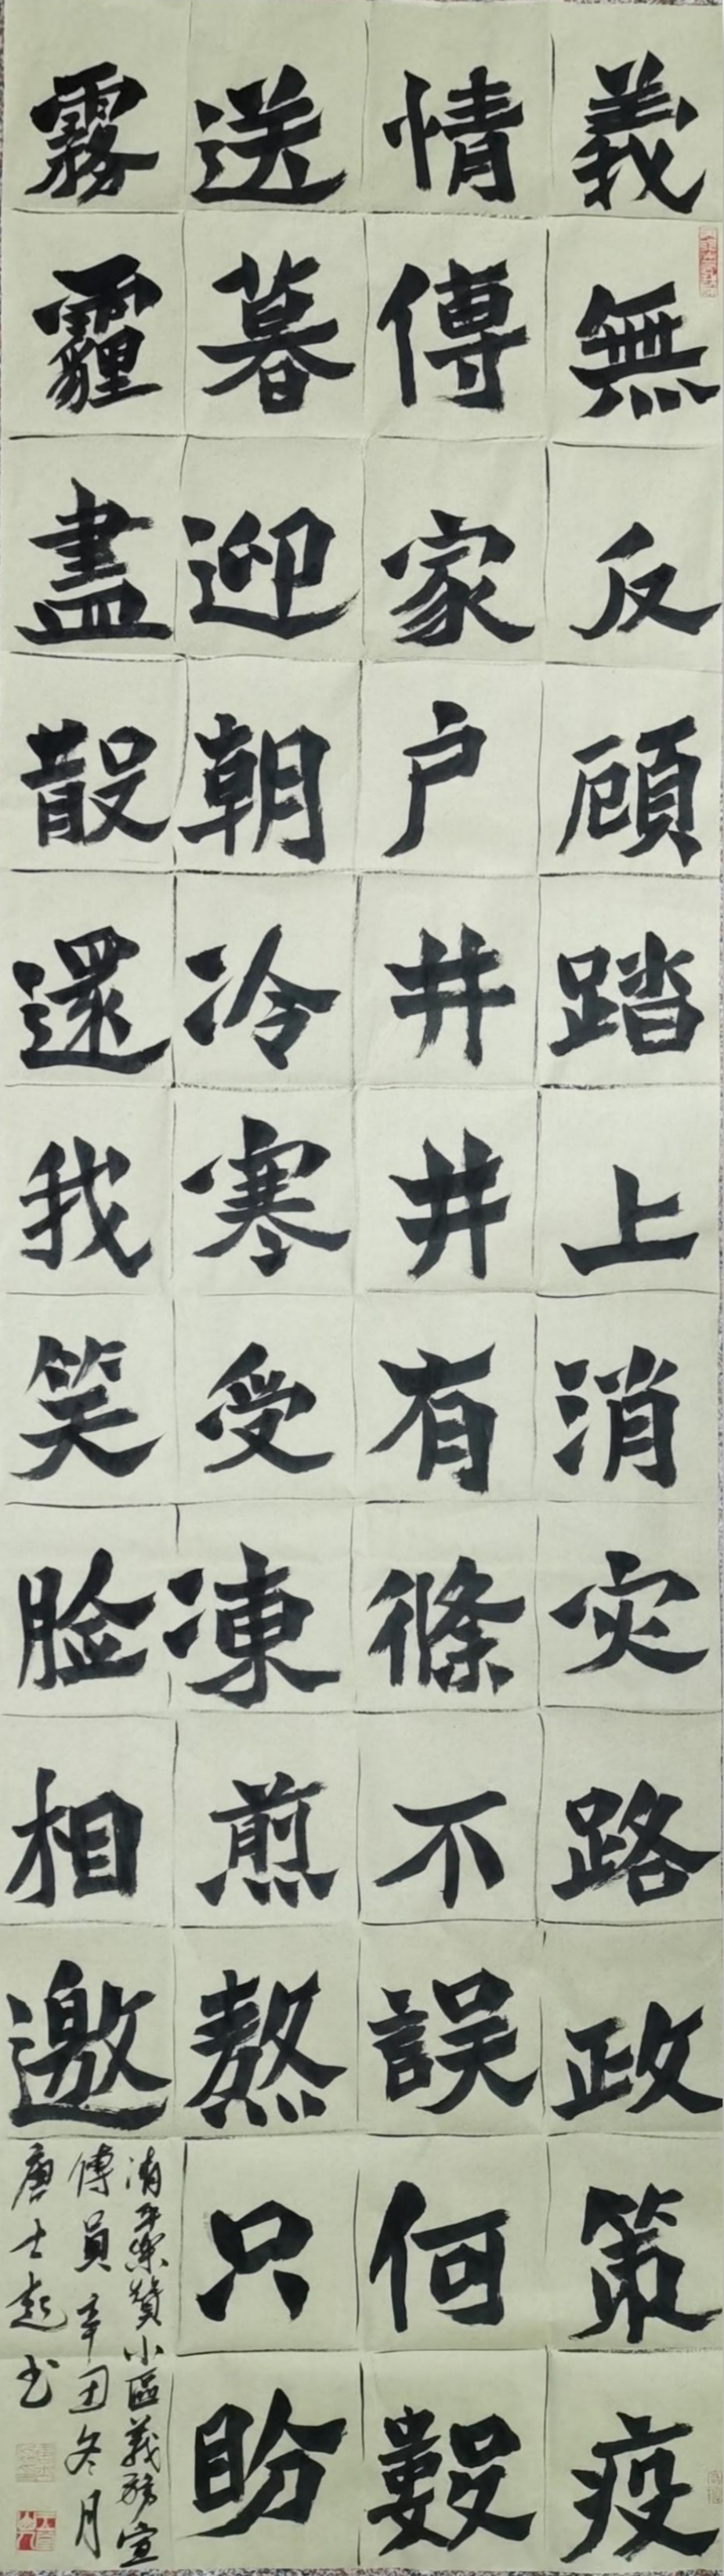 義無反顧踏上消灾路政策疫
情傳家户井井有條不誤何艱
送暮迎朝冷寒受凍煎熬只盼
霧霾盡散還我笑脸相邀
清平樂贊小區義務宣
傳員辛丑冬月
唐士起书